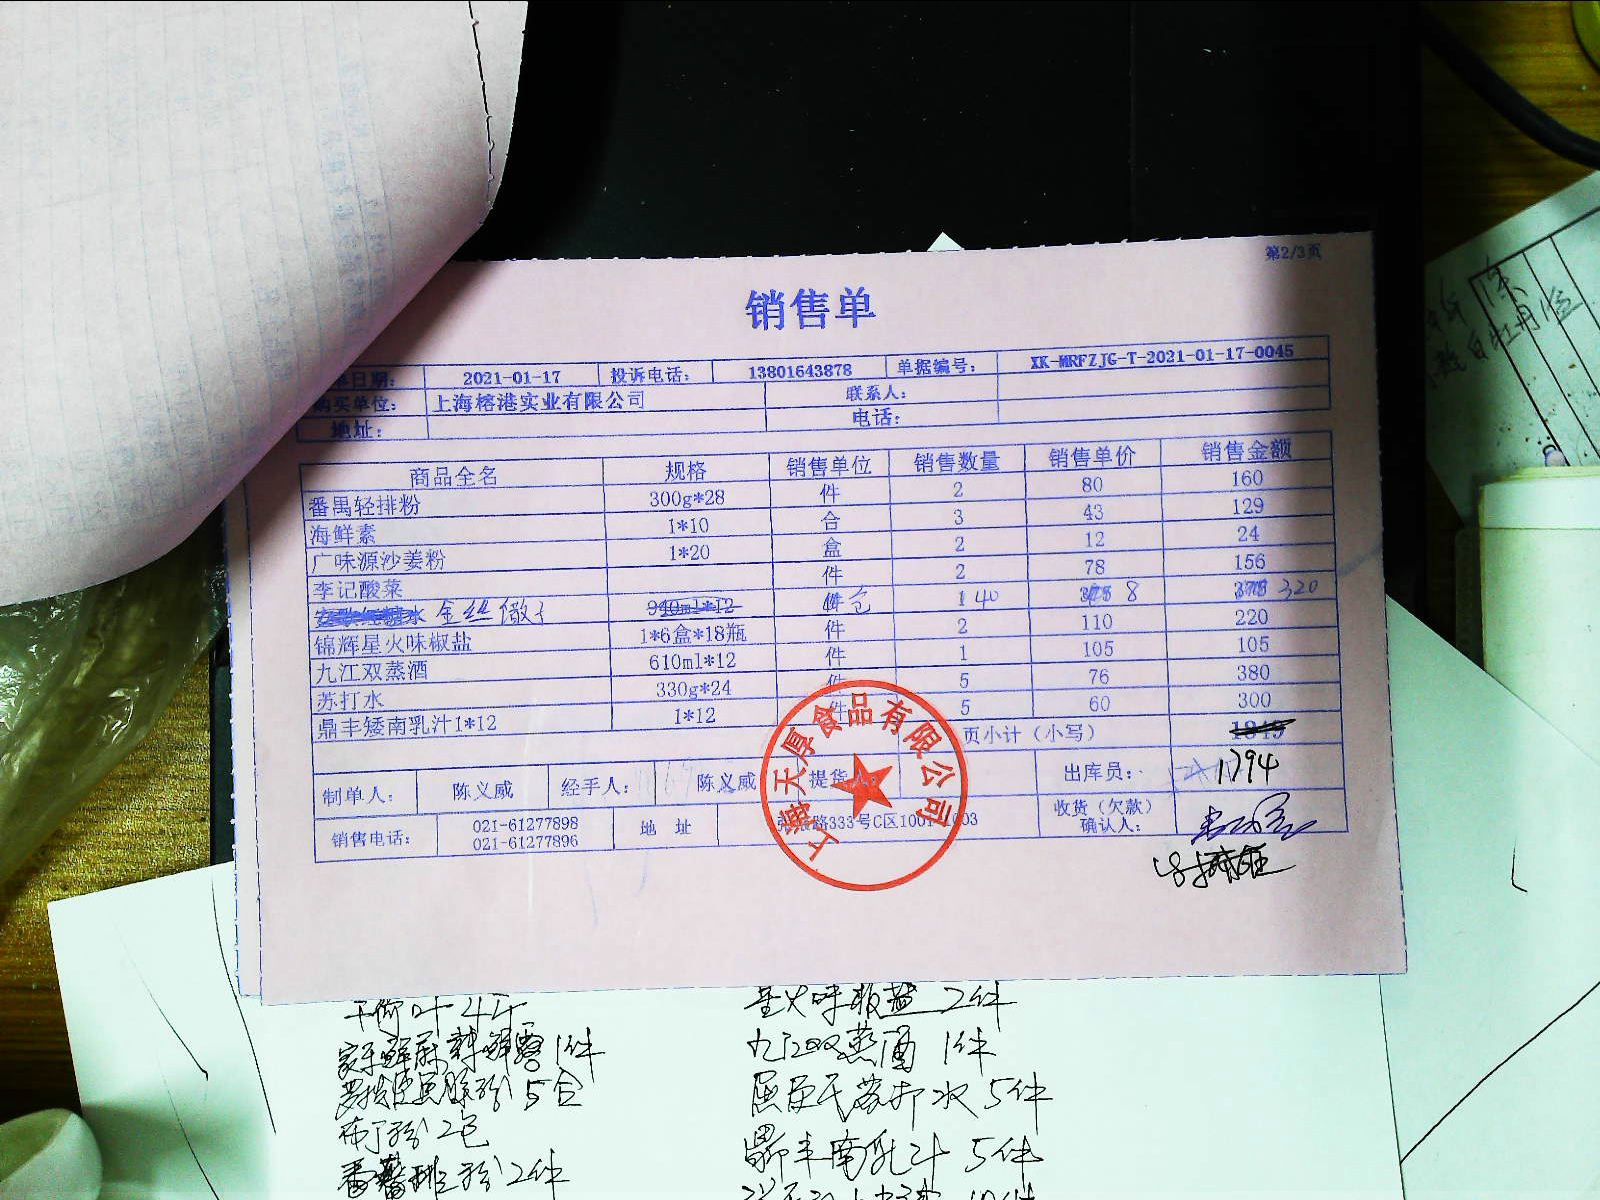 第2/3页
销售单
单日期： 2021-01-17 投诉电话： 13801643878 单据编号： XK-MRFZJG-T-2021-01-17-0045
购买单位： 上海榕港实业有限公司 联系人：
地址： 电话：
商品全名 规格 销售单位 销售数量 销售单价 销售金额
番禺轻排粉 300g*28 件 2 80 160
海鲜素 1*10 合 3 43 129
广味源沙姜粉 1*20 盒 2 12 24
李记酸菜 件 2 78 156
金丝馓子 940ml*12 仓 40 8 320
锦辉星火味椒盐 1*6盒*18瓶 件 2 110 220
九江双蒸酒 610ml*12 件 1 105 105
苏打水 330g*24 件 5 76 380
鼎丰矮南乳汁1*12 1*12 件 5 60 300
页小计（小写） 1849
制单人： 陈义威 经手人： 陈义威 提货 出库员： 1794
销售电话： 021-61277898 021-61277896 地 址 路333号C区1001-1003 收货（欠款）确认人：
上海天厚食品有限公司
干荷叶 4斤
1件
5合
布丁粉 2包
番禺排粉 2件
星火味椒盐 2件
九江双蒸酒 1件
屈臣氏苏打水 5件
鼎丰南乳汁 5件